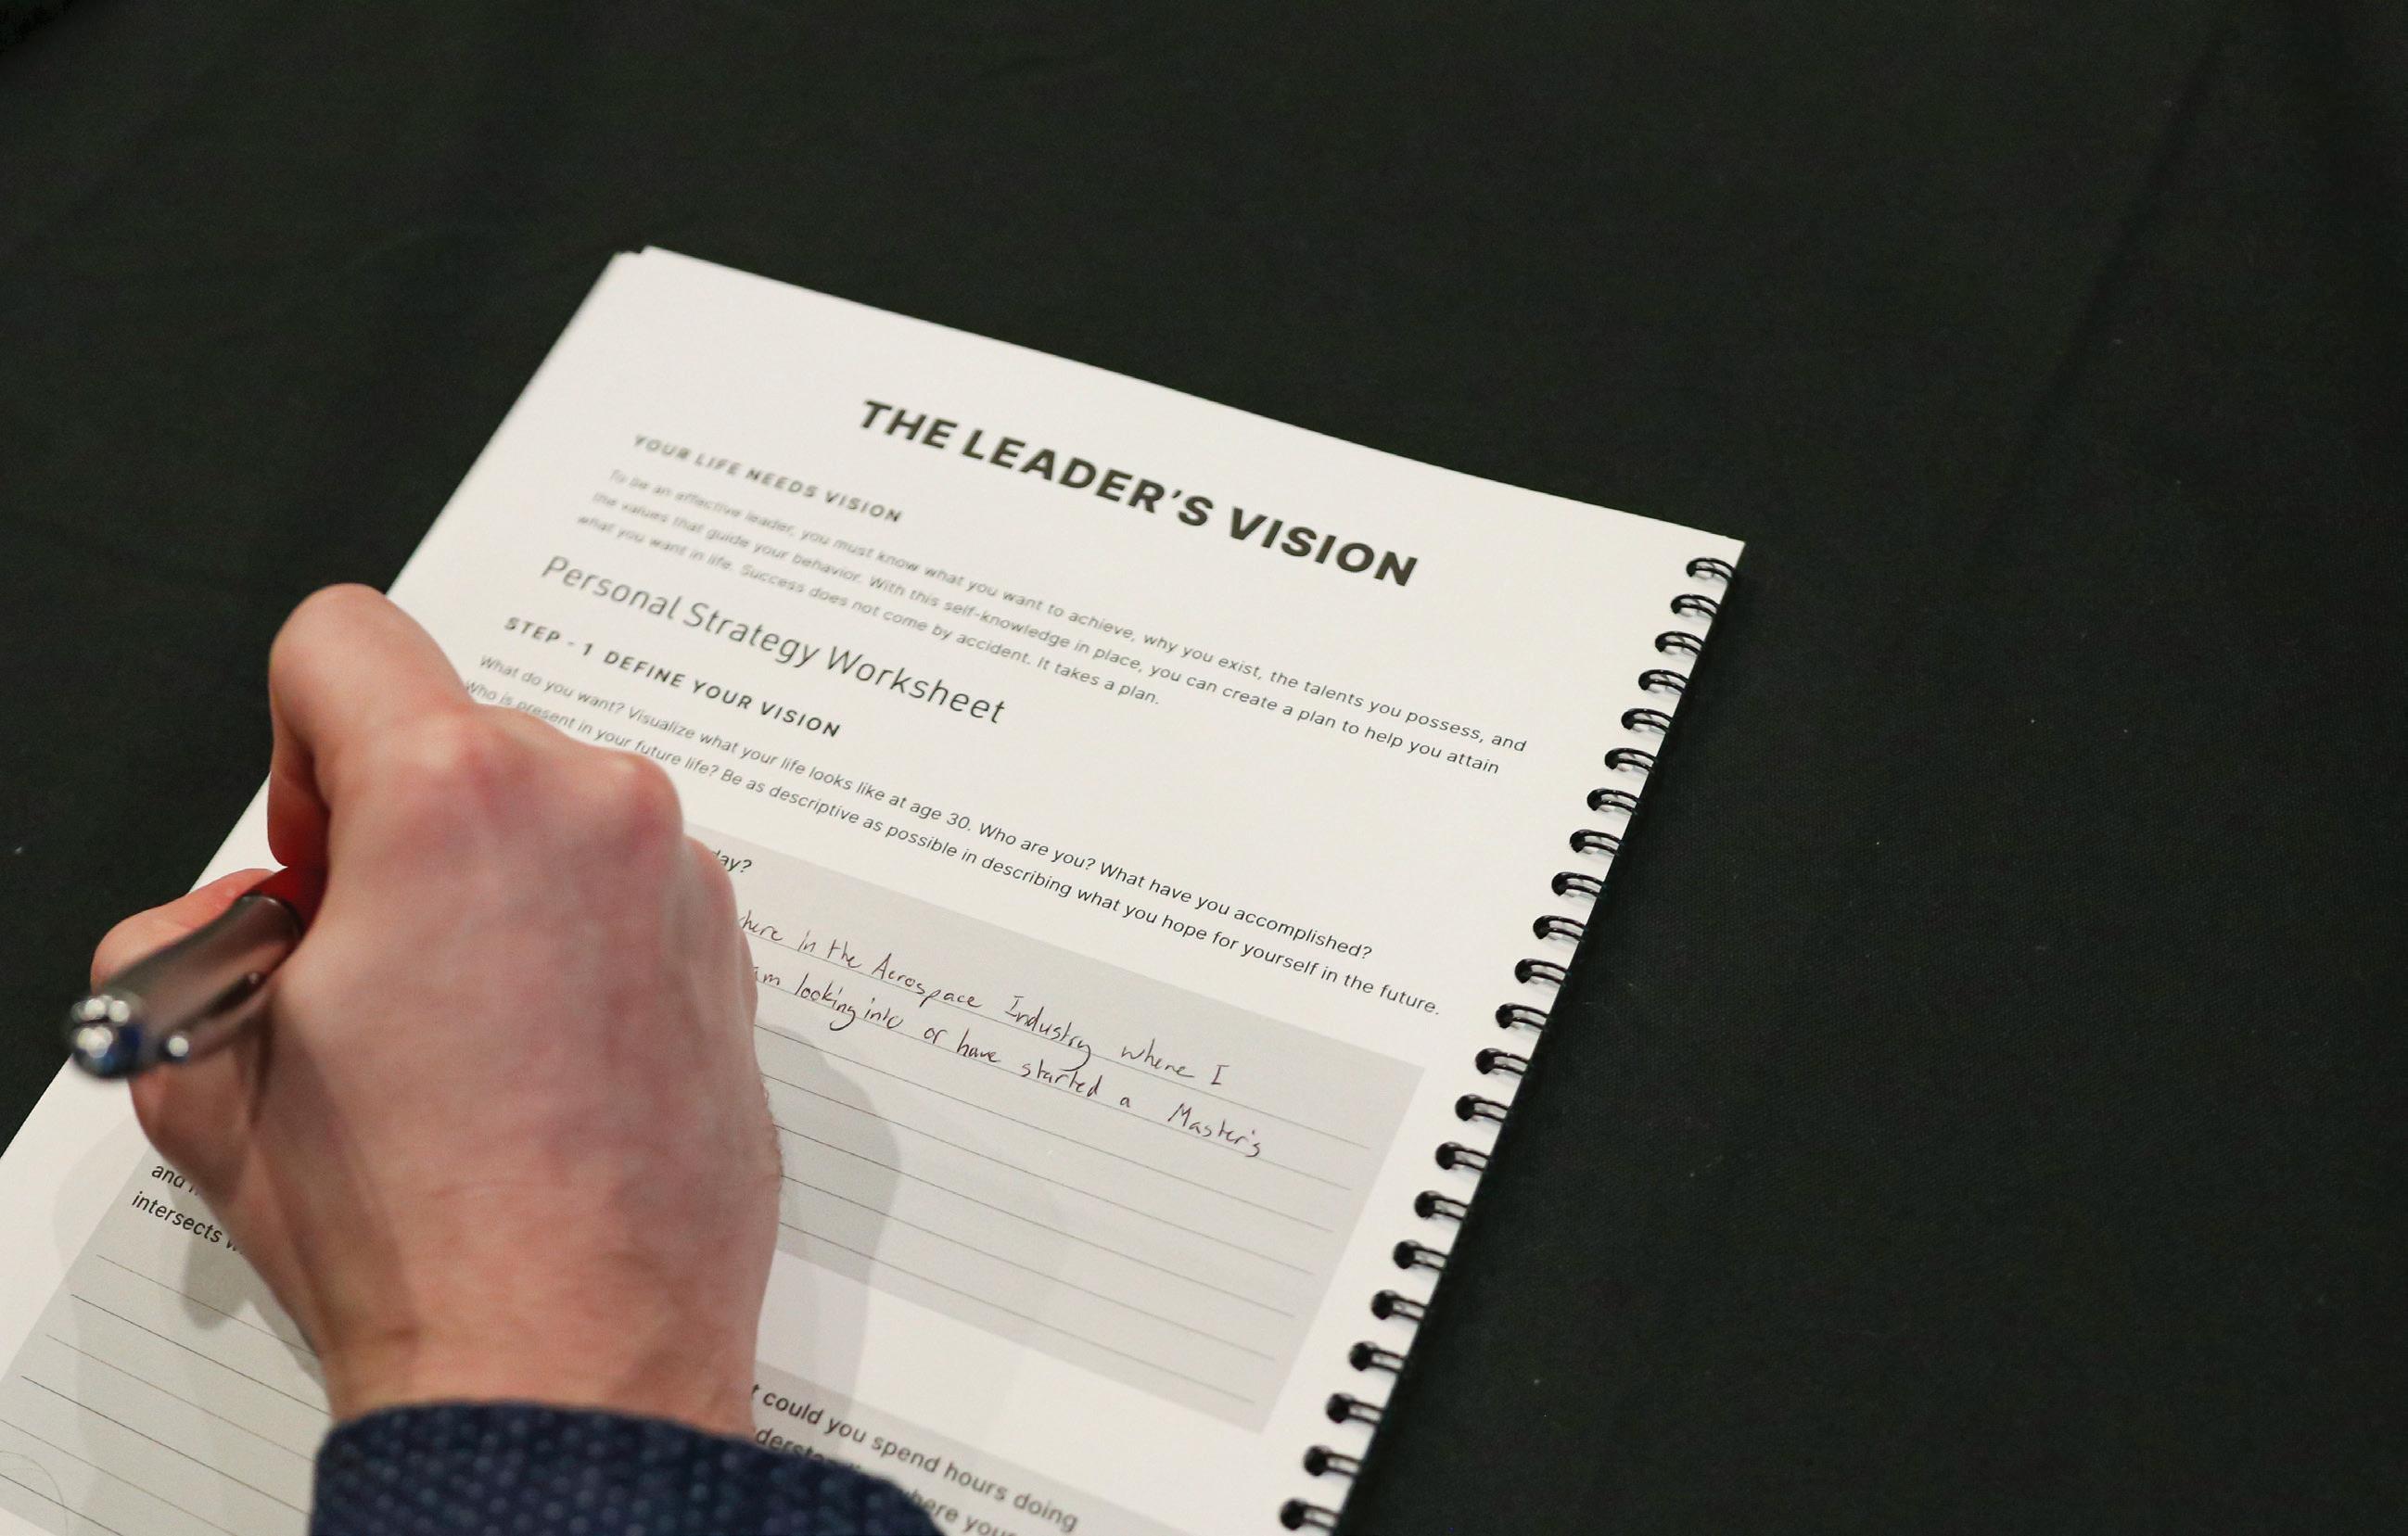 THE LEADER'S VISION
YOUR LIFE NEEDS VISION
To be an effective leader, you must know what you want to achieve, why you exist, the talents you possess, and
the values that guide your behavior. With this self-knowledge in place, you can create a plan to help you attain
what you want in life. Success does not come by accident. It takes a plan.
Personal Strategy Worksheet
STEP - 1 DEFINE YOUR VISION
What do you want? Visualize what your life looks like at age 30. Who are you? What have you accomplished?
Who is present in your future life? Be as descriptive as possible in describing what you hope for yourself in the future.
in the Aerospace Industry where I
am looking into or have started a Master's
and
intersects
could you spend hours doing